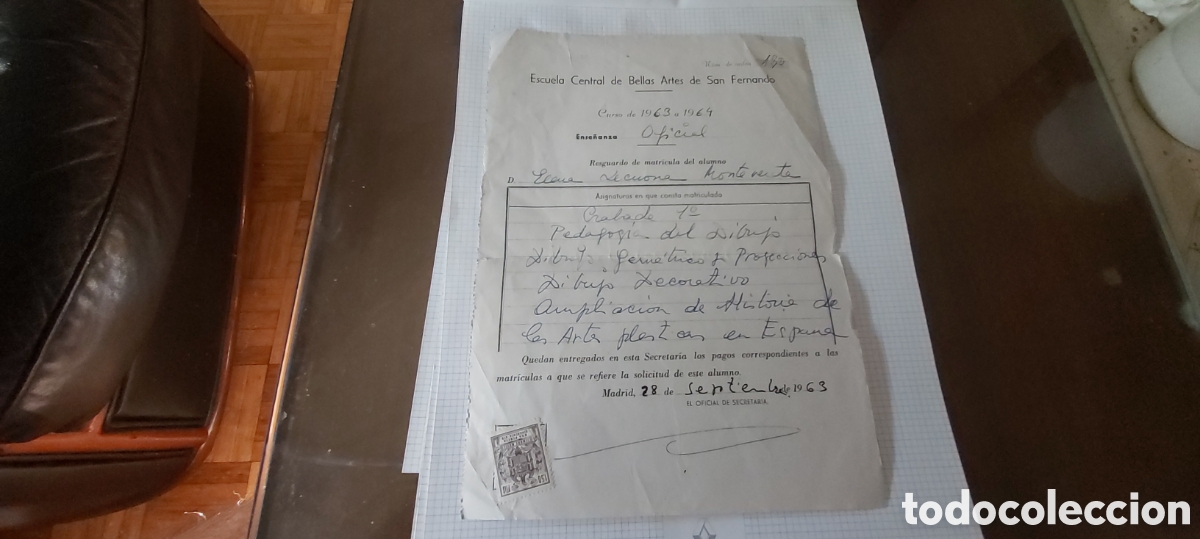 Escuela Central de Bellas Artes de San Fernando
Curso de 1963 a 1964
Enseñanza Oficial
Resguardo de matrícula del alumno
D. Elena Lecuona Monteverde
Asignaturas en que consta matriculado
Grabado 1º
Pedagogía del Dibujo
Dibujo Geométrico y Proyecciones
Dibujo Decorativo
Ampliación de Historia de
las Artes plasticas en España
Quedan entregados en esta Secretaría los pagos correspondientes a las
matrículas a que se refiere la solicitud de este alumno.
Madrid, 28 de Septiembre de 1963
EL OFICIAL DE SECRETARIA,
todocoleccion